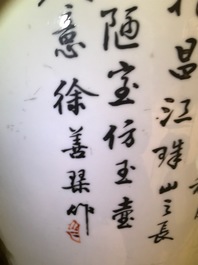 昌江珠山之長
陋室仿玉壺
意徐善琹作